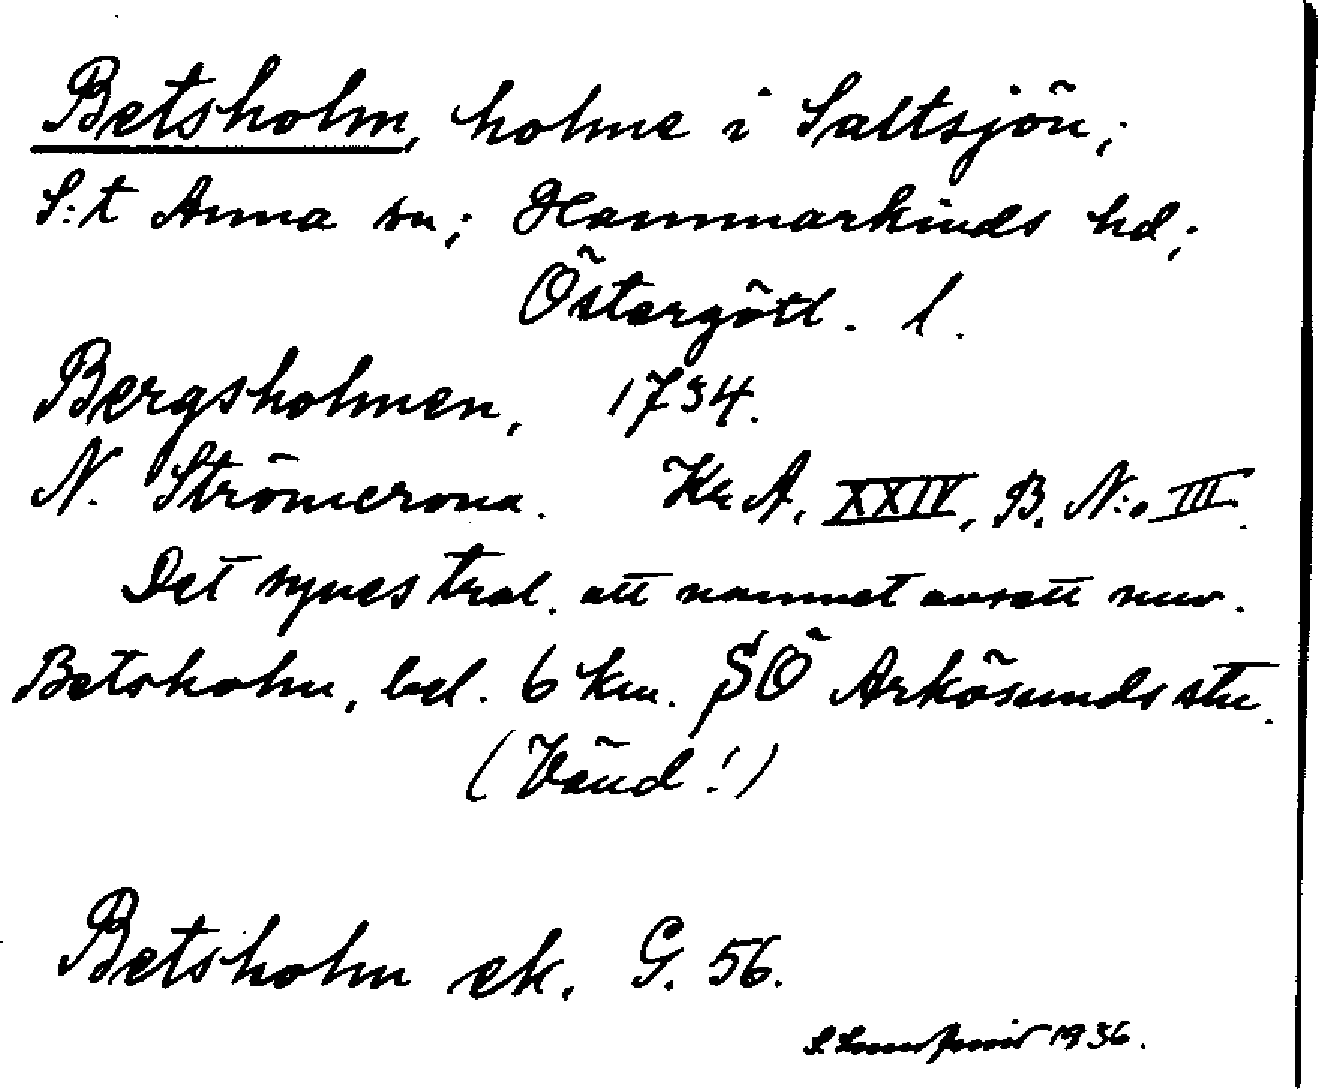 Betsholm, holme i Saltsjön;
S:t Anna sn; Hammarkinds hd;
Östergötl. l.
Bergsholmen, 1734.
N. Strömcrona. Kr A, XXIV, B. N:o III.
Det synes trol. att namnet avsett nuv.
Betsholm, bel. 6 km. SÖ Arkösunds stn.
(Vänd!)
Betsholm ek. G. 56.
1936.